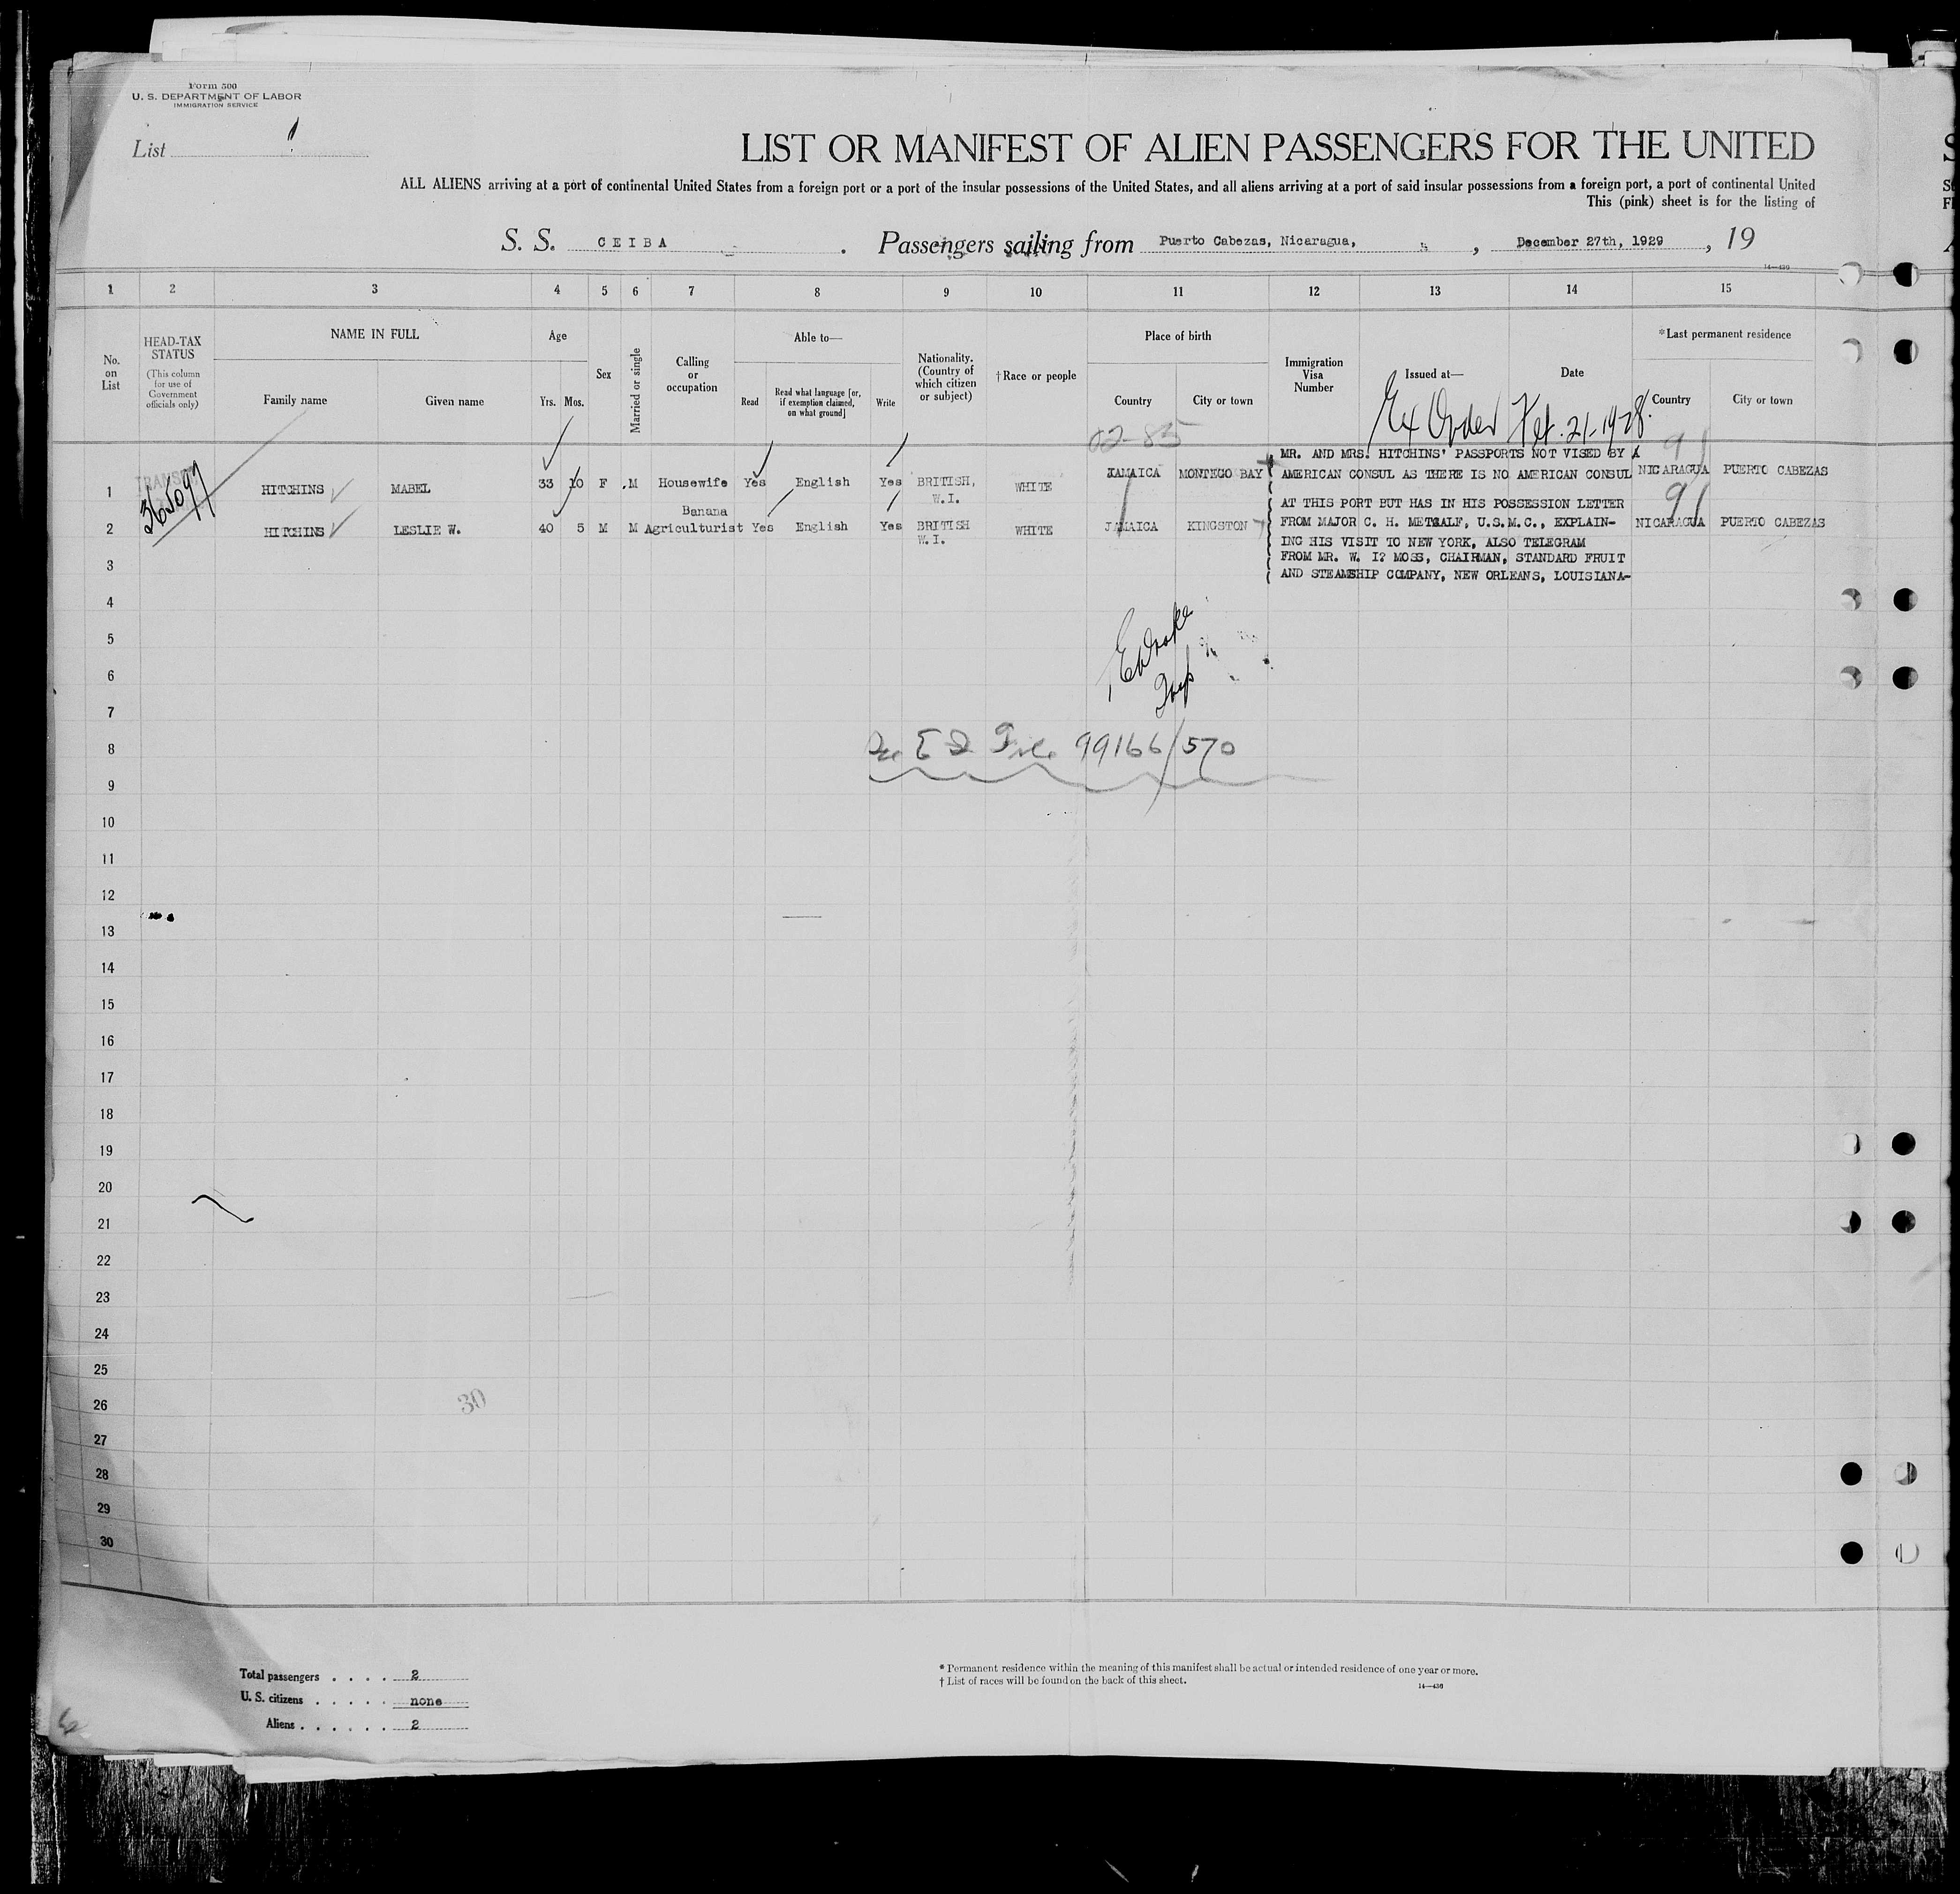 Form 500
U. S. DEPARTMENT OF LABOR
IMMIGRATION SERVICE
List 1
LIST OR MANIFEST OF ALIEN PASSENGERS FOR THE UNITED
ALL ALIENS arriving at a port of continental United States from a foreign port or a port of the insular possessions of the United States, and all aliens arriving at a port of said insular possessions from a foreign port, a port of continental United
This (pink) sheet is for the listing of
S. S. CEIBA . Passengers sailing from Puerto Cabezas, Nicaragua, , December 27th, 1929 , 19
14—430
1 2 3 4 5 6 7 8 9 10 11 12 13 14 15
No. on List
HEAD-TAX STATUS
(This column for use of Government officials only)
NAME IN FULL
Family name Given name
Age
Yrs. Mos.
Sex
Married or single
Calling or occupation
Able to—
Read
Read what language [or, if exemption claimed, on what ground]
Write
Nationality. (Country of which citizen or subject)
†Race or people
Place of birth
Country City or town
Immigration Visa Number
Issued at—
Date
*Last permanent residence
Country City or town
Ex Order Feb. 21-1928.
02-85
TRANSIT
365097
1 HITCHINS MABEL 33 10 F M Housewife Yes English Yes BRITISH, W.I. WHITE JAMAICA MONTEGO BAY NICARAGUA PUERTO CABEZAS
91
2 HITCHINS LESLIE W. 40 5 M M Banana Agriculturist Yes English Yes BRITISH W.I. WHITE JAMAICA KINGSTON NICARAGUA PUERTO CABEZAS
91
MR. AND MRS. HITCHINS' PASSPORTS NOT VISED BY A
AMERICAN CONSUL AS THERE IS NO AMERICAN CONSUL
AT THIS PORT BUT HAS IN HIS POSSESSION LETTER
FROM MAJOR C. H. METCALF, U.S.M.C., EXPLAIN-
ING HIS VISIT TO NEW YORK, ALSO TELEGRAM
FROM MR. W. I? MOSS, CHAIRMAN, STANDARD FRUIT
AND STEAMSHIP COMPANY, NEW ORLEANS, LOUISIANA-
3
4
5
6
Insp
7
8
File 99166/570
9
10
11
12
13
14
15
16
17
18
19
20
21
22
23
24
25
26
30
27
28
29
30
Total passengers . . . . 2
U. S. citizens . . . . . none
Aliens . . . . . . 2
* Permanent residence within the meaning of this manifest shall be actual or intended residence of one year or more.
† List of races will be found on the back of this sheet.
14—430